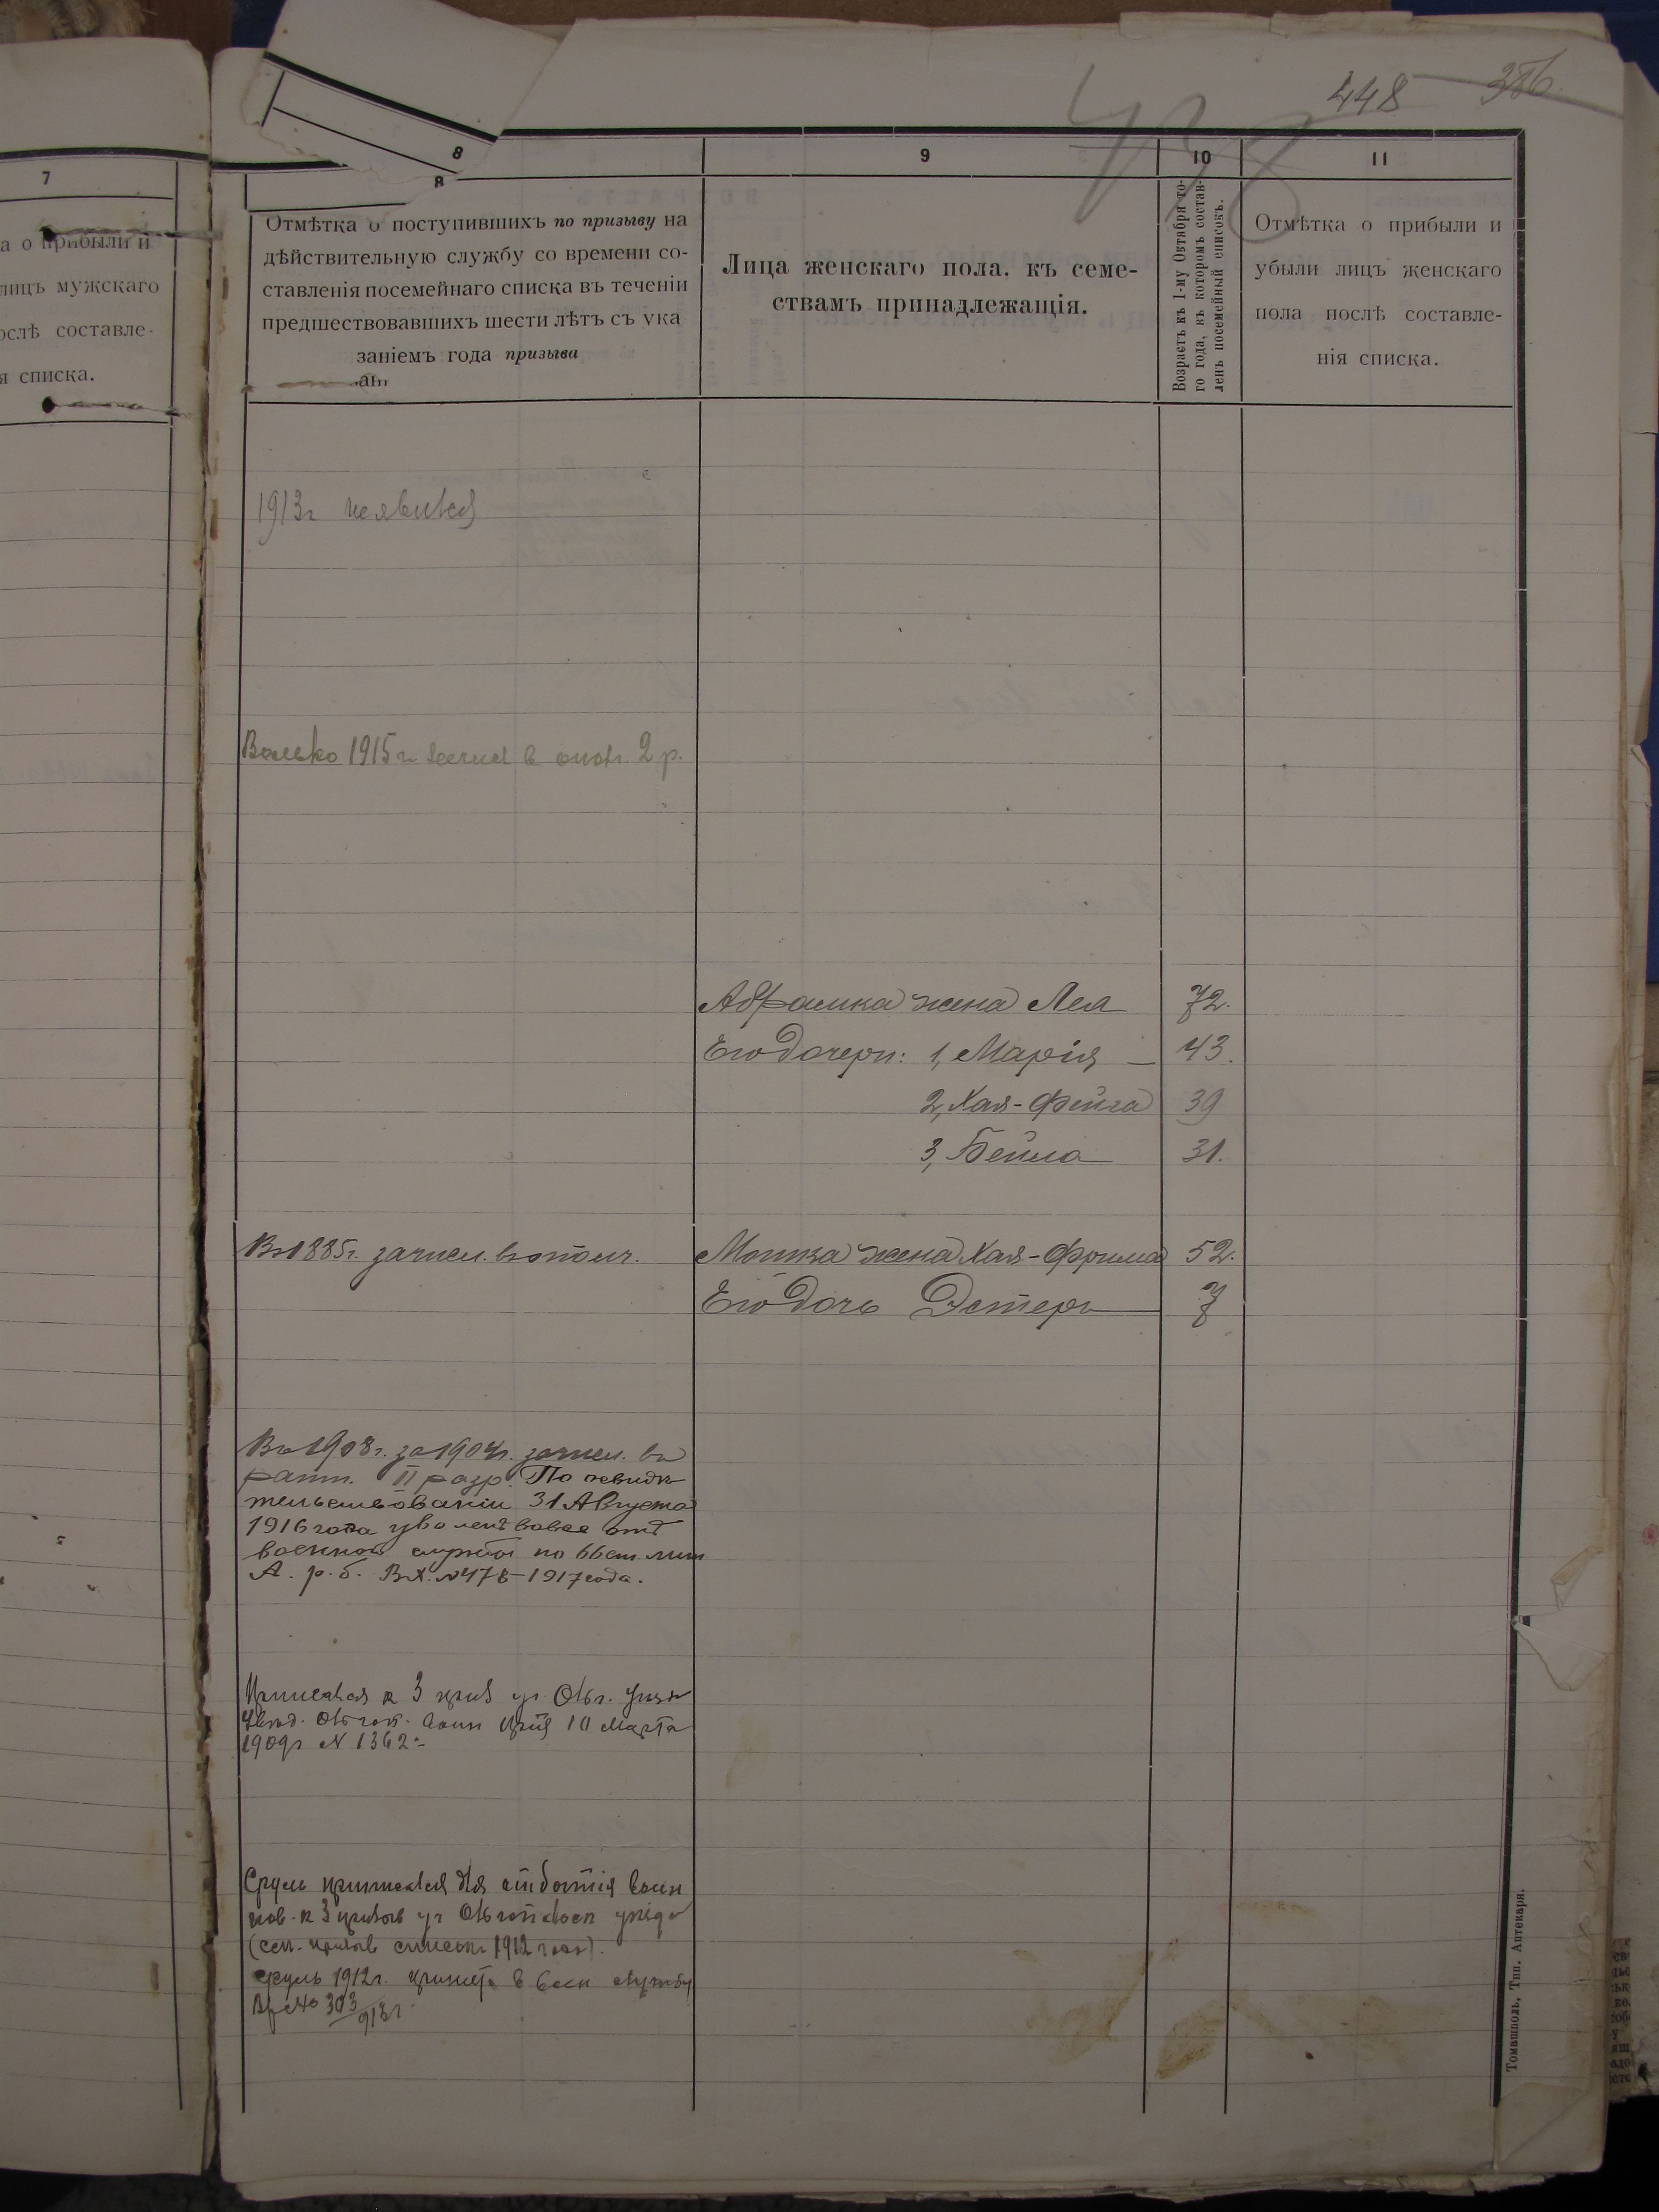 448 386
438
7
а о прибыли и
лицъ мужскаго
ослѣ составле-
я списка.
8
8
9
10
11
Отмѣтка о поступившихъ по призыву на
дѣйствительную службу со времени со-
ставленія посемейнаго списка въ теченіи
предшествовавшихъ шести лѣтъ съ ука
заніемъ года призыва
Лица женскаго пола, къ семе-
ствамъ принадлежащія.
Возрастъ къ 1-му Октября то-
го года, въ которомъ состав-
ленъ посемейный списокъ.
Отмѣтка о прибыли и
убыли лицъ женскаго
пола послѣ составле-
нія списка.
1913г неявился
Волько 1915 г. 2 р.
Абрамка жена Леа 72.
Его дочери: 1, Марія 43.
2, Хая-Фейга 39
3, Бейла 31.
Въ 1885г. зачисл. въ ополч.
Мошка жена Хая-Фрима 52.
Его дочь Эстеръ 7
Въ 1908г. за 1904г. зачисл. въ
ратн. II разр. По освидѣ
тельствованіи 31 Августа
1916 года уволенъ вовсе отъ
военной службы по 66 ст. лит
А. р. б. Вх. №478-1917 года.
Приписался к 3 приз уч.
10 Марта
1909г N 1362
Сруль приписался для отбытія воин
пов. к 3 призыв уч уѣзда
(сем. призыв списокъ 1912 года).
Сруль 1912г. принятъ в воен службу
№ 303/913г
Томашполь, Тип. Аптекаря.